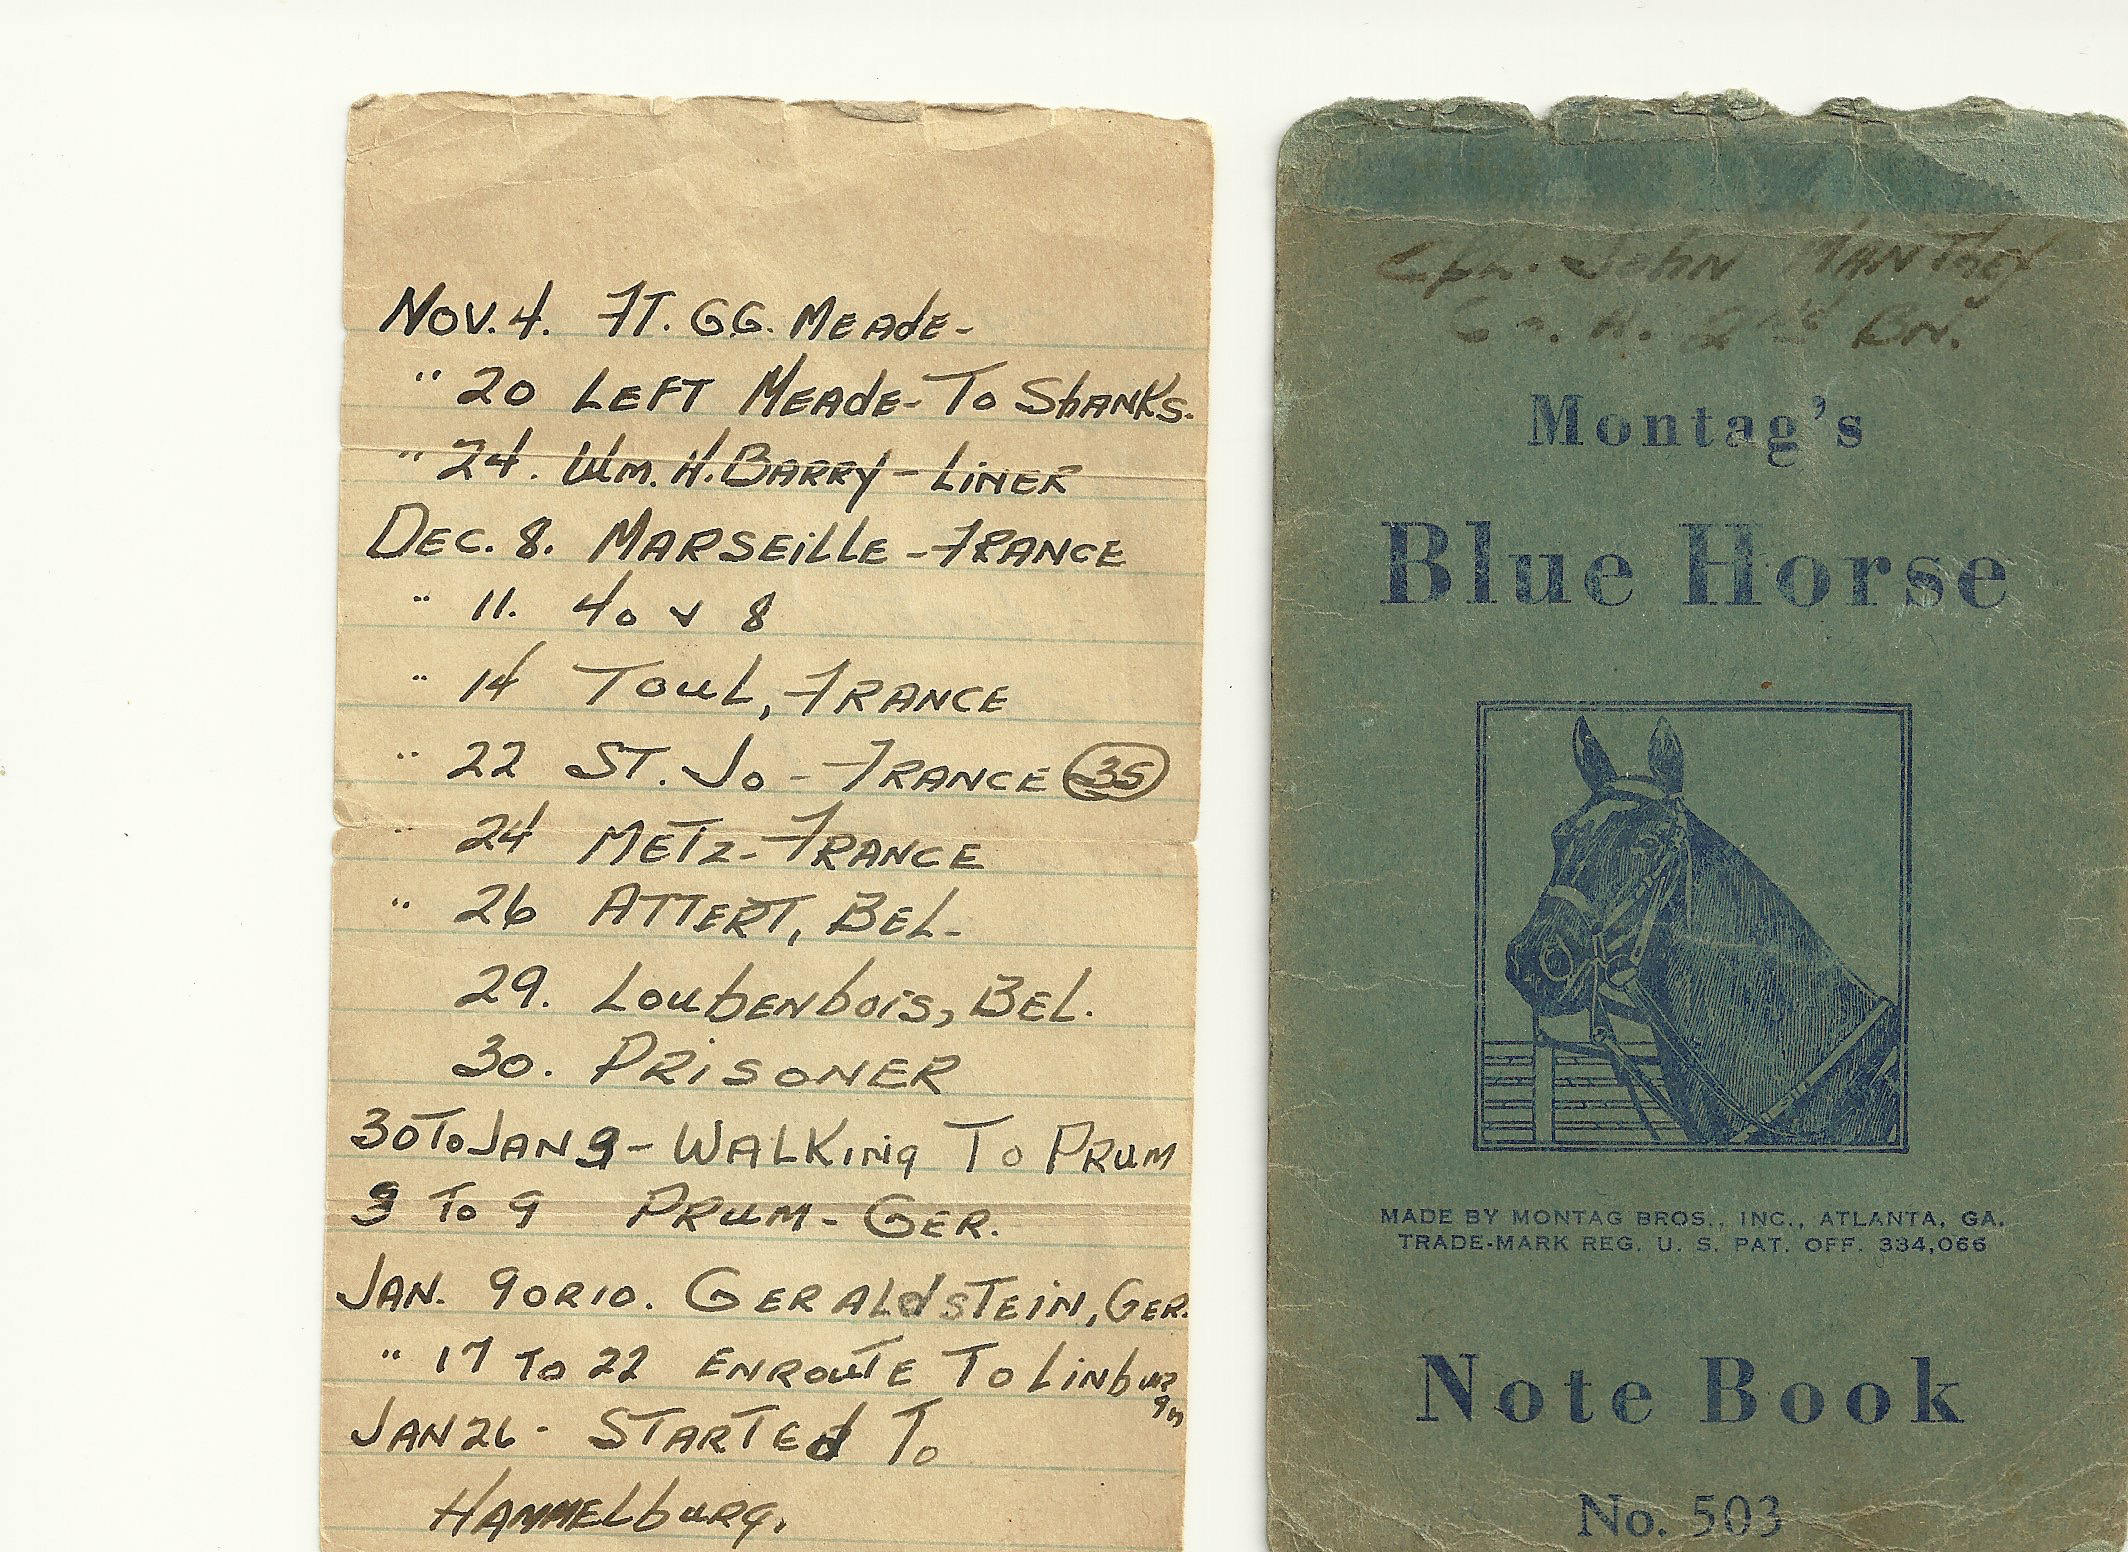 NOV. 4. FT. GG. MEAdE-
" 20 LEFT MEAdE- To ShANKS.
" 24. Wm. H. BARRY - LiNER
DEC. 8. MARSEiLLE - FRANCE
" 11. 40 & 8
" 14 TOUL, FRANCE
" 22 ST. Jo - FRANCE 35
" 24 METz- FRANCE
" 26 ATTERT, BEL-
29. LoubENbois, BEL.
30. PRiSONER
30 To JAN 3 - WALKiNg To PRUM
3 To 9 PRUM - GER.
JAN. 9 OR 10. GERALdSTEiN, GER.
" 17 To 22 ENROUTE To LiNbuRg
JAN 26 - STARTEd To
HAMMELbuRg.
Cpl. John MANThey
Co. A. Bn.
Montag's
Blue Horse
MADE BY MONTAG BROS., INC., ATLANTA, GA.
TRADE-MARK REG. U. S. PAT. OFF. 334,066
Note Book
No. 503